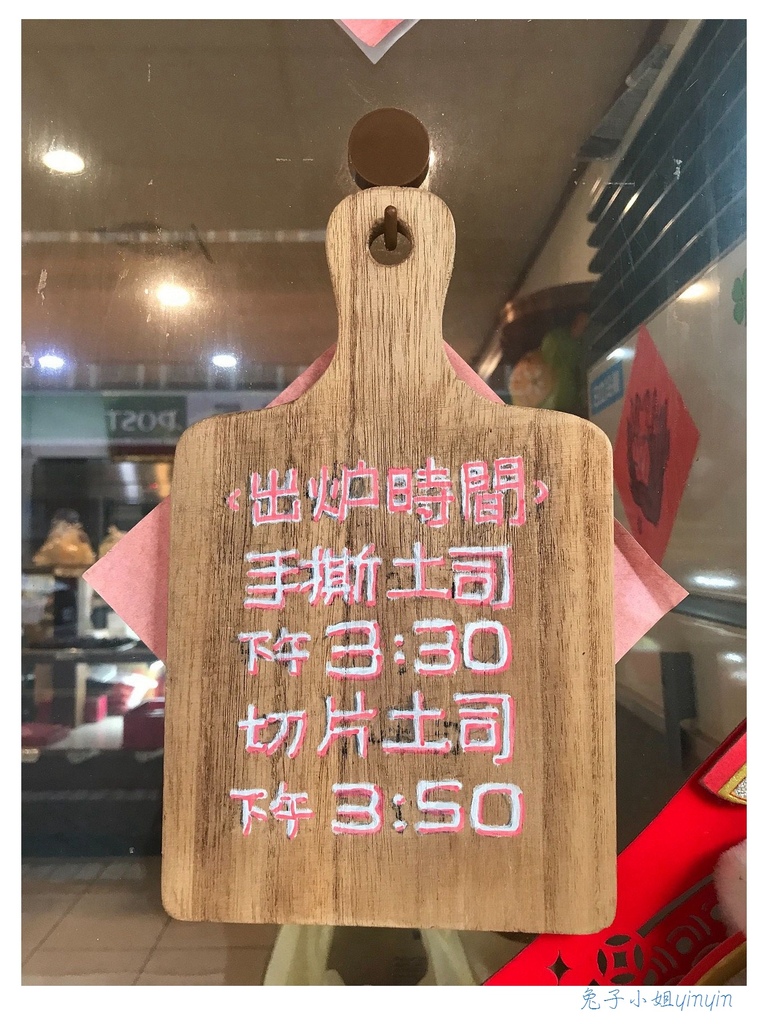 POST
<出炉時間>
手撕土司
下午3:30
切片土司
下午3:50
兔子小姐yinyin